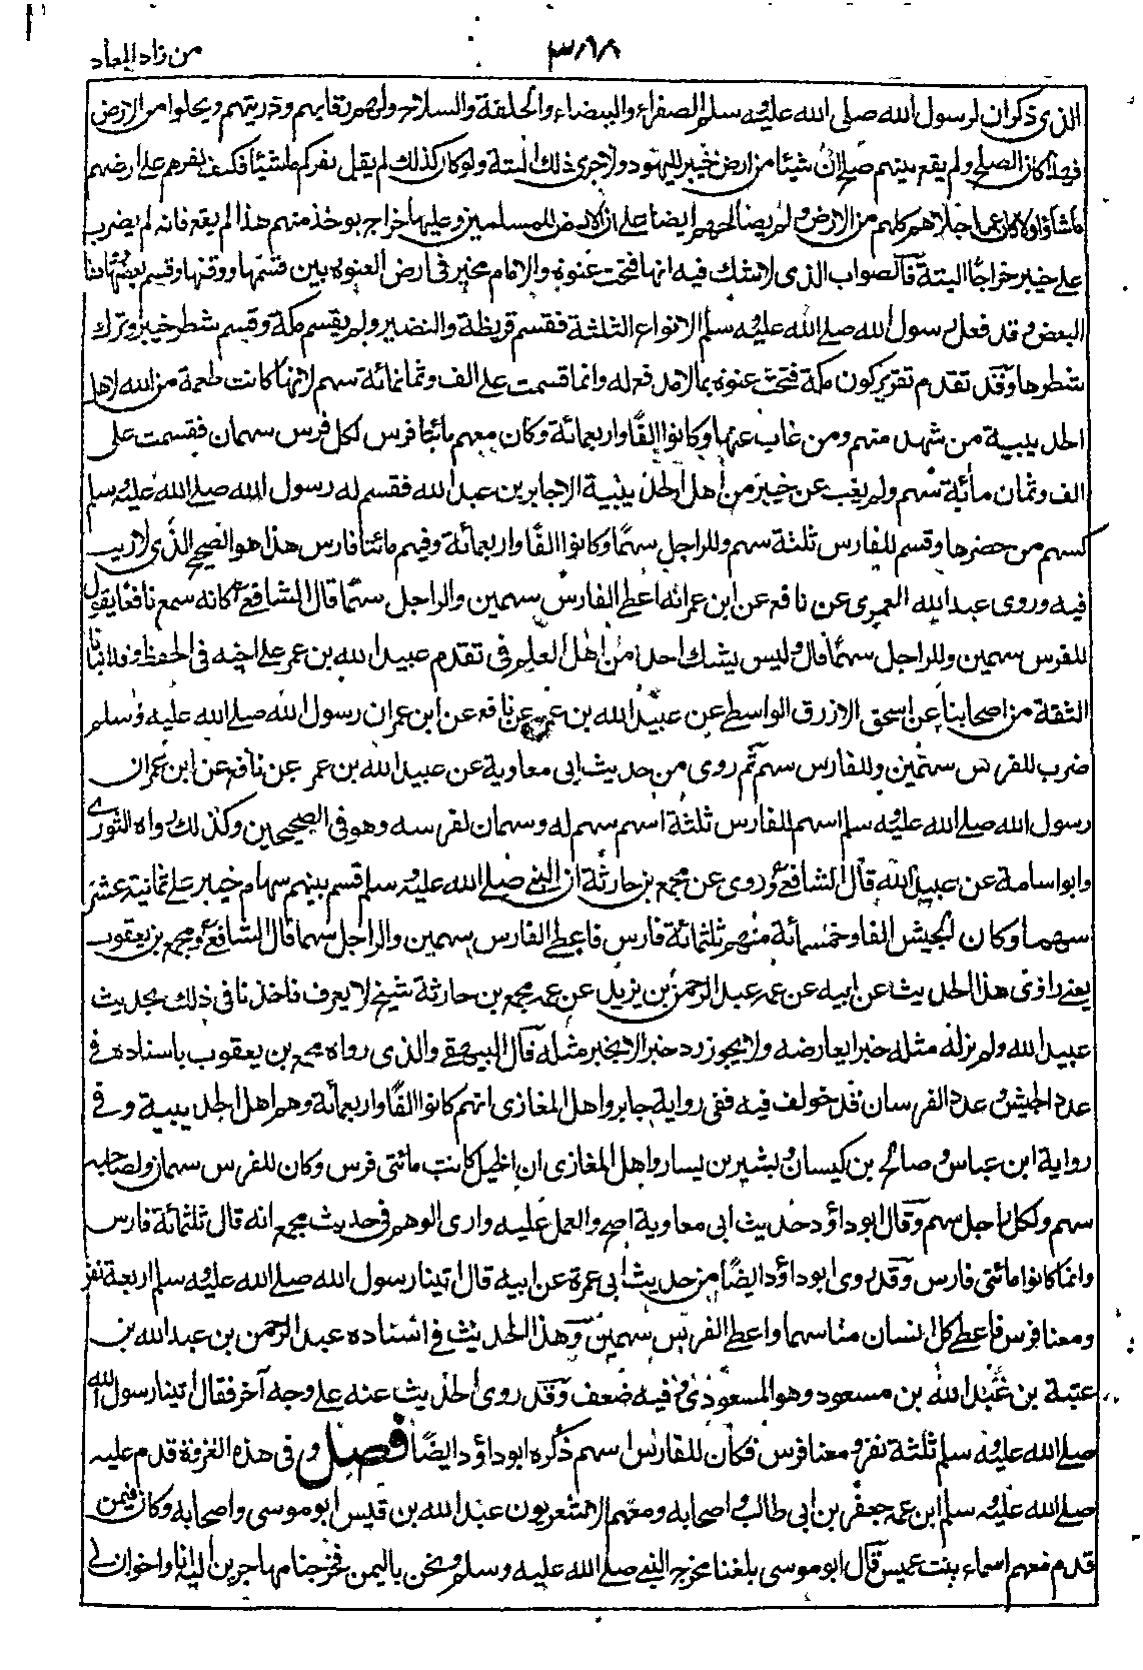 ٣٩٨ من زاد المعاد
الذى ذكر ان لرسول الله صلى الله عليه سلم الصفراء والبيضاء والحلقة والسلاح ولهم رقابهم وذريتهم ويجلوا من الارض
فهذا كان الصلح ولم يقع بينهم صلح ان شيئا من ارض خيبر لليهود ولا جرى ذلك البتة ولو كان كذلك لم يقل نقركم ما شئنا فكيف نقرهم على ارضهم
ما شاؤا ولا كان عمر اجلاهم كلهم من الارض ولم يصالحهم ايضا على ان الارض للمسلمين وعليها خراج يوخذ منهم هذا لم يقع فانه لم يضرب
على خيبر خراجًا البتة فالصواب الذى لاشك فيه انها فتحت عنوة والامام مخير فى ارض العنوة بين قسمها ووقفها وقسم بعضها ووقف
البعض وقد فعل رسول الله صلى الله عليه سلم الانواع الثلثة فقسم قريظة والنضير ولم يقسم مكة وقسم شطر خيبر وترك
شطرها وقد تقدم تقرير كون مكة فتحت عنوة بما لا مدفع له وانما قسمت على الف وثمانمائة سهم لانها كانت طعمة من الله لاهل
الحديبية من شهد منهم ومن غاب عنها وكانوا الفًا واربعمائة وكان معهم مائتا فرس لكل فرس سهمان فقسمت على
الف وثمان مائة سهم ولم يغب عن خيبر من اهل الحديبية الا جابر بن عبد الله فقسم له رسول الله صلى الله عليه سلم
كسهم من حضرها وقسم للفارس ثلثة سهم وللراجل سهمًا وكانوا الفًا واربعمائة وفيهم مائتا فارس هذا هو الصحيح الذى لاريب
فيه وروى عبد الله العمرى عن نافع عن ابن عمر انه اعطى الفارس سهمين والراجل سهمًا قال الشافعى كانه سمع نافعا يقول
للفرس سهمين وللراجل سهمًا قال وليس يشك احد من اهل العلم فى تقدم عبيد الله بن عمر على اخيه فى الحفظ وقد انبأنا
الثقة من اصحابنا عن اسحق الازرق الواسطى عن عبيد الله بن عمر عن نافع عن ابن عمر ان رسول الله صلى الله عليه وسلم
ضرب للفرس سهمين وللفارس سهم ثم روى من حديث ابى معاوية عن عبيد الله بن عمر عن نافع عن ابن عمر ان
رسول الله صلى الله عليه سلم اسهم للفارس ثلثة اسهم سهم له وسهمان لفرسه وهو فى الصحيحين وكذلك رواه الثورى
وابو اسامة عن عبيد الله قال الشافعى وروى عن مجمع بن حارثة ان النبى صلى الله عليه سلم قسم بينهم سهام خيبر على ثمانية عشر
سهما وكان الجيش الفا وخمسمائة منهم ثلثمائة فارس فاعطى الفارس سهمين والراجل سهما قال الشافعى ومجمع بن يعقوب
يعنى راوى هذا الحديث عن ابيه عن عمه عبد الرحمن بن يزيد عن عمه مجمع بن حارثة شيخ لا يعرف فاخذنا فى ذلك بحديث
عبيد الله ولم نر له مثله خبرا يعارضه ولا يجوز رد خبر الا بخبر مثله قال البيهقى والذى رواه مجمع بن يعقوب باسناده فى
عدد الجيش وعدد الفرسان قد خولف فيه ففى رواية جابر واهل المغازى انهم كانوا الفًا واربعمائة وهم اهل الحديبية وفى
رواية ابن عباس وصالح بن كيسان وبشير بن يسار واهل المغازى ان الخيل كانت مائتى فرس وكان للفرس سهمان ولصاحبه
سهم ولكل راجل سهم وقال ابو داؤد حديث ابى معاوية اصح والعمل عليه وارى الوهم فى حديث مجمع انه قال ثلثمائة فارس
وانما كانوا مائتى فارس وقد روى ابو داؤد ايضًا من حديث ابى عمرة عن ابيه قال اتينا رسول الله صلى الله عليه سلم اربعة نفر
ومعنا فرس فاعطى كل انسان منا سهما واعطى الفرس سهمين وهذا الحديث فى اسناده عبد الرحمن بن عبد الله بن
عتبة بن عبد الله بن مسعود وهو المسعودى وفيه ضعف وقد روى الحديث عنه على وجه آخر فقال اتينا رسول الله
صلى الله عليه سلم ثلثة نفر ومعنا فرس فكان للفارس اسهم ذكره ابو داؤد ايضًا فصل وفى هذه الغزوة قدم عليه
صلى الله عليه سلم ابن عمه جعفر بن ابى طالب واصحابه ومعهم الاشعريون عبد الله بن قيس ابو موسى واصحابه وكان فيمن
قدم معهم اسماء بنت عميس قال ابو موسى بلغنا مخرج النبى صلى الله عليه وسلم ونحن باليمن فخرجنا مهاجرين اليه انا واخوان لى